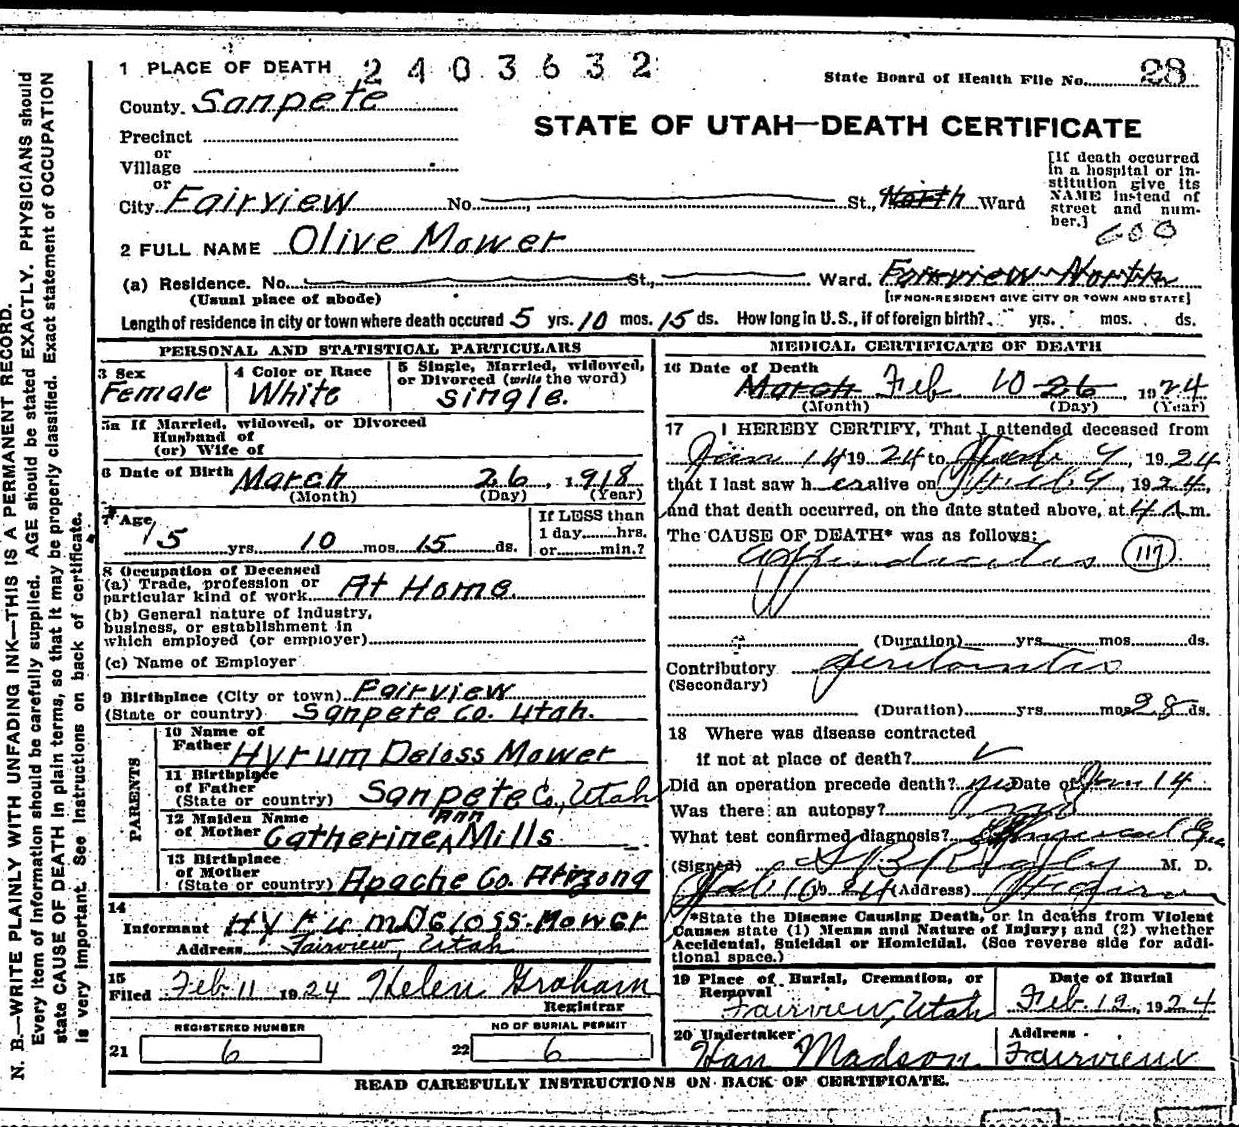 1 PLACE OF DEATH 2403632
State Board of Health File No. 28
County Sanpete
STATE OF UTAH—DEATH CERTIFICATE
Precinct
or
Village
or
City Fairview No. St., North Ward
[If death occurred in a hospital or institution give its NAME instead of street and number.]
600
2 FULL NAME Olive Mower
(a) Residence. No. St., Ward. Fairview North
(Usual place of abode) [IF NON-RESIDENT GIVE CITY OR TOWN AND STATE]
Length of residence in city or town where death occured 5 yrs. 10 mos. 15 ds. How long in U.S., if of foreign birth? yrs. mos. ds.
PERSONAL AND STATISTICAL PARTICULARS
3 Sex Female
4 Color or Race White
5 Single, Married, widowed, or Divorced (write the word) single.
5a If Married, widowed, or Divorced
Husband of
(or) Wife of
6 Date of Birth March 26, 1918
(Month) (Day) (Year)
7 Age 5 yrs. 10 mos 15 ds.
If LESS than 1 day hrs. or min.?
8 Occupation of Deceased
(a) Trade, profession or particular kind of work At Home.
(b) General nature of industry, business, or establishment in which employed (or employer)
(c) Name of Employer
9 Birthplace (City or town) Fairview
(State or country) Sanpete Co. Utah.
PARENTS
10 Name of Father Hyrum Deloss Mower
11 Birthplace of Father (State or country) Sanpete Co., Utah
12 Maiden Name of Mother Catherine Ann Mills
13 Birthplace of Mother (State or country) Apache Co. Arizona
14
Informant Hyrum Deloss Mower
Address Fairview, Utah
15
Filed Feb 11 1924 Helen Graham
Registrar
REGISTERED NUMBER
21 6
NO OF BURIAL PERMIT
22 6
MEDICAL CERTIFICATE OF DEATH
16 Date of Death
March Feb 10 26 1924
(Month) (Day) (Year)
17 I HEREBY CERTIFY, That I attended deceased from
Jan 14 1924 to Feb 9, 1924
that I last saw her alive on Feb 9, 1924,
and that death occurred, on the date stated above, at 4 A m.
The CAUSE OF DEATH* was as follows:
Appendicitis 117
(Duration) yrs. mos. ds.
Contributory peritonitis
(Secondary)
(Duration) yrs. mos 28 ds.
18 Where was disease contracted
if not at place of death?
Did an operation precede death? yes Date of Jan 14
Was there an autopsy? no
What test confirmed diagnosis?
(Signed) M. D.
Feb 10 1924 (Address)
*State the Disease Causing Death, or in deaths from Violent Causes state (1) Means and Nature of Injury; and (2) whether Accidental, Suicidal or Homicidal. (See reverse side for additional space.)
19 Place of Burial, Cremation, or Removal Fairview, Utah
Date of Burial Feb 12, 1924
20 Undertaker Han Madson
Address Fairview
READ CAREFULLY INSTRUCTIONS ON BACK OF CERTIFICATE.
N. B.—WRITE PLAINLY WITH UNFADING INK—THIS IS A PERMANENT RECORD.
Every item of information should be carefully supplied. AGE should be stated EXACTLY. PHYSICIANS should
state CAUSE OF DEATH in plain terms, so that it may be properly classified. Exact statement of OCCUPATION
is very important. See instructions on back of certificate.